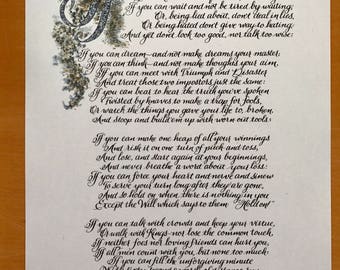 If you can wait and not be tired by waiting,
Or, being lied about, don't deal in lies,
Or being hated don't give way to hating,
And yet don't look too good, nor talk too wise:
If you can dream—and not make dreams your master;
If you can think—and not make thoughts your aim,
If you can meet with Triumph and Disaster
And treat those two impostors just the same:
If you can bear to hear the truth you've spoken
Twisted by knaves to make a trap for fools,
Or watch the things you gave your life to, broken,
And stoop and build 'em up with worn out tools:
If you can make one heap of all your winnings
And risk it on one turn of pitch and toss,
And lose, and start again at your beginnings,
And never breathe a word about your loss:
If you can force your heart and nerve and sinew
To serve your turn long after they are gone,
And so hold on when there is nothing in you
Except the Will which says to them "Hold on!"
If you can talk with crowds and keep your virtue,
Or walk with Kings—nor lose the common touch,
If neither foes nor loving friends can hurt you,
If all men count with you, but none too much:
If you can fill the unforgiving minute